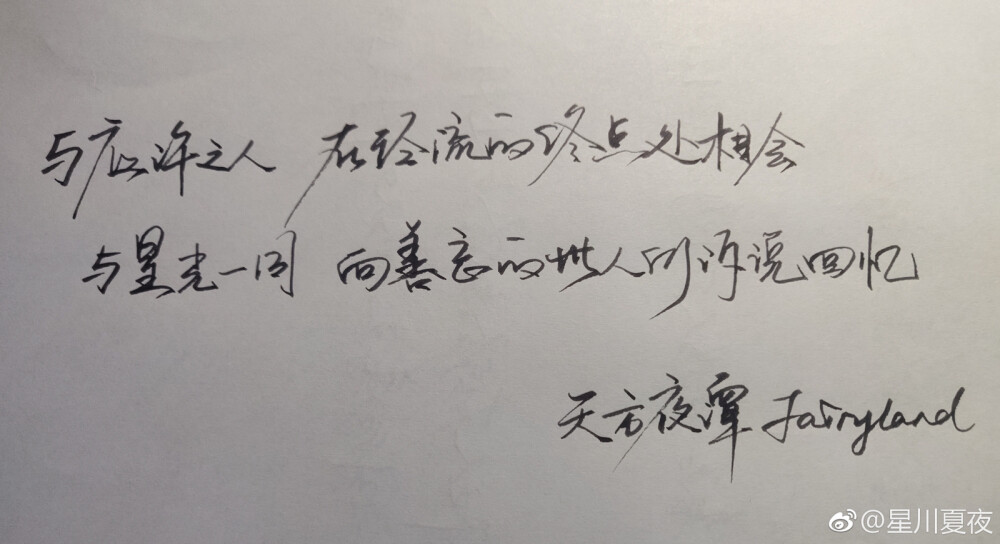 与应许之人 在经流的终点处相会
与星光一同 向善忘的世人所诉说回忆
天方夜谭 Fairyland
@星川夏夜